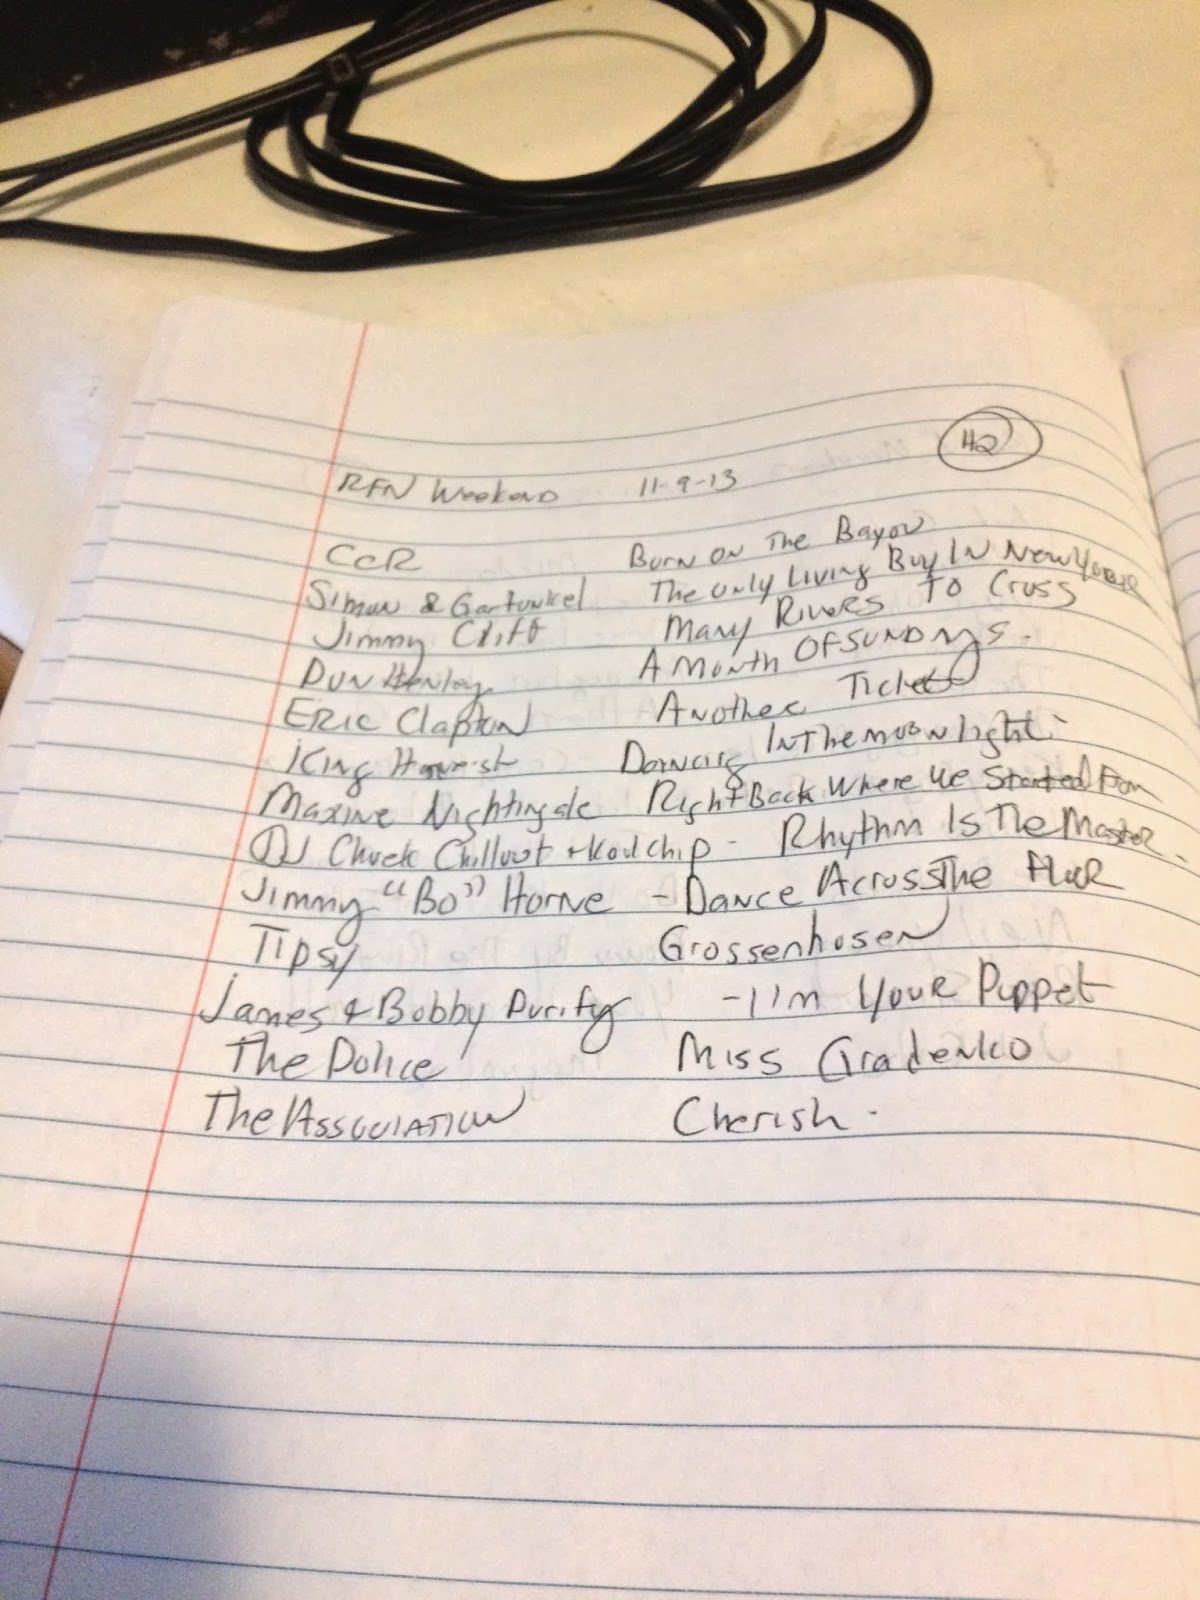 42
RFN Weekend 11-9-13
CCR Born On The Bayou
Simon & Garfunkel The Only Living Boy In New York
Jimmy Cliff Many Rivers To Cross
Don Henley A Month Of Sundays.
Eric Clapton Another Ticket
King Harvest Dancing In The moonlight
Maxine Nightingale Right Back Where We Started From
DJ Chuck Chillout + Kool Chip - Rhythm Is The Master.
Jimmy "Bo" Horne - Dance Across The Floor
Tipsy Grossenhosen
James & Bobby Purify - I'm Your Puppet
The Police Miss Gradenko
The Association Cherish.